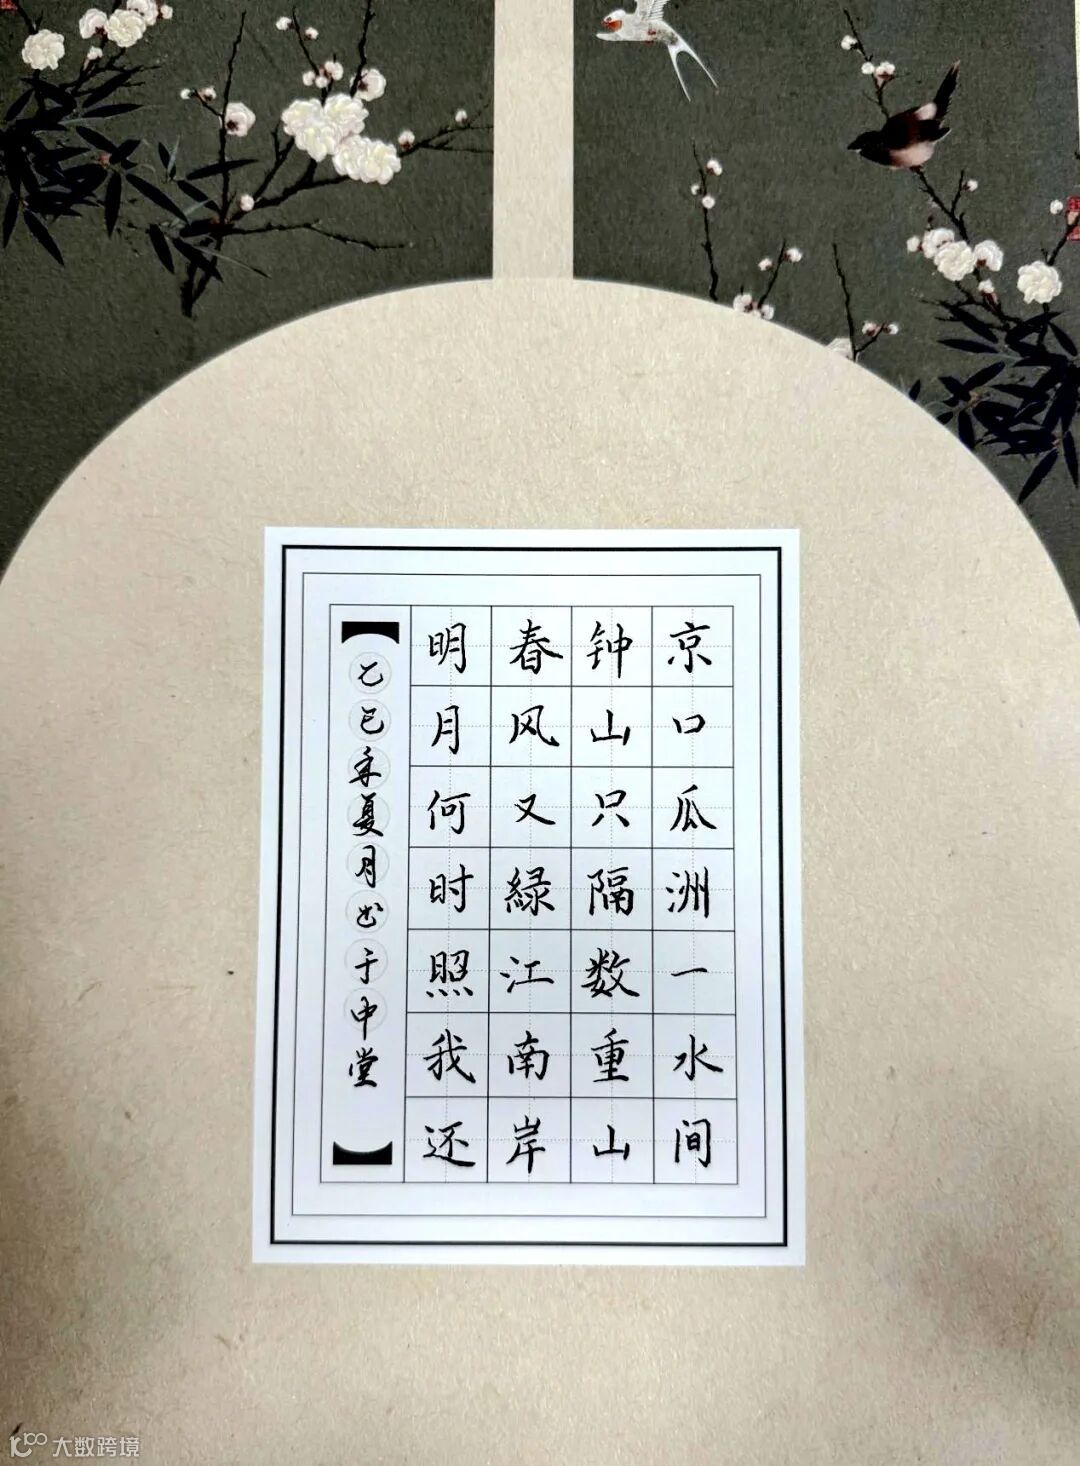 京口瓜洲一水间
钟山只隔数重山
春风又緑江南岸
明月何时照我还
乙巳年夏月书于中堂
大数跨境